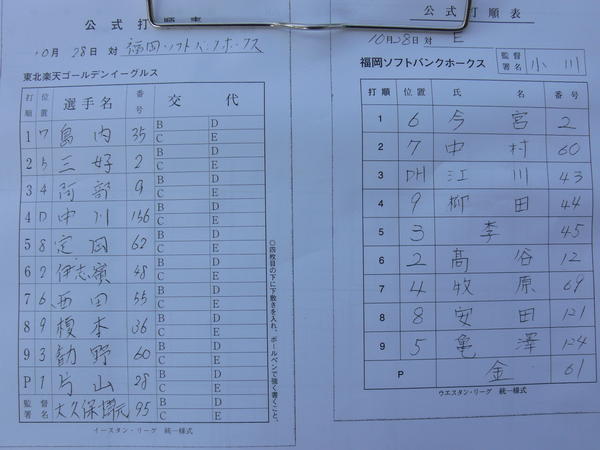 公式打順表
10月28日 対 福岡ソフトバンクホークス
東北楽天ゴールデンイーグルス
打順 位置 選手名 番号 交代
1 7 島内 35 B C D E
2 5 三好 2 B C D E
3 4 阿部 9 B C D E
4 D 中川 136 B C D E
5 8 定岡 62 B C D E
6 2 伊志嶺 48 B C D E
7 6 西田 55 B C D E
8 9 榎本 36 B C D E
9 3 勧野 60 B C D E
P 1 片山 28 B C D E
監督署名 大久保博元 95 B C D E
イースタン・リーグ 統一様式
○四枚目の下に下敷きを入れ、ボールペンで強く書くこと。
公式打順表
10月28日 対 E
福岡ソフトバンクホークス 監督署名 小川
打順 位置 氏名 番号
1 6 今宮 2
2 7 中村 60
3 DH 江川 43
4 9 柳田 44
5 3 李 45
6 2 髙谷 12
7 4 牧原 69
8 8 安田 121
9 5 亀澤 124
P 金 61
ウエスタン・リーグ 統一様式